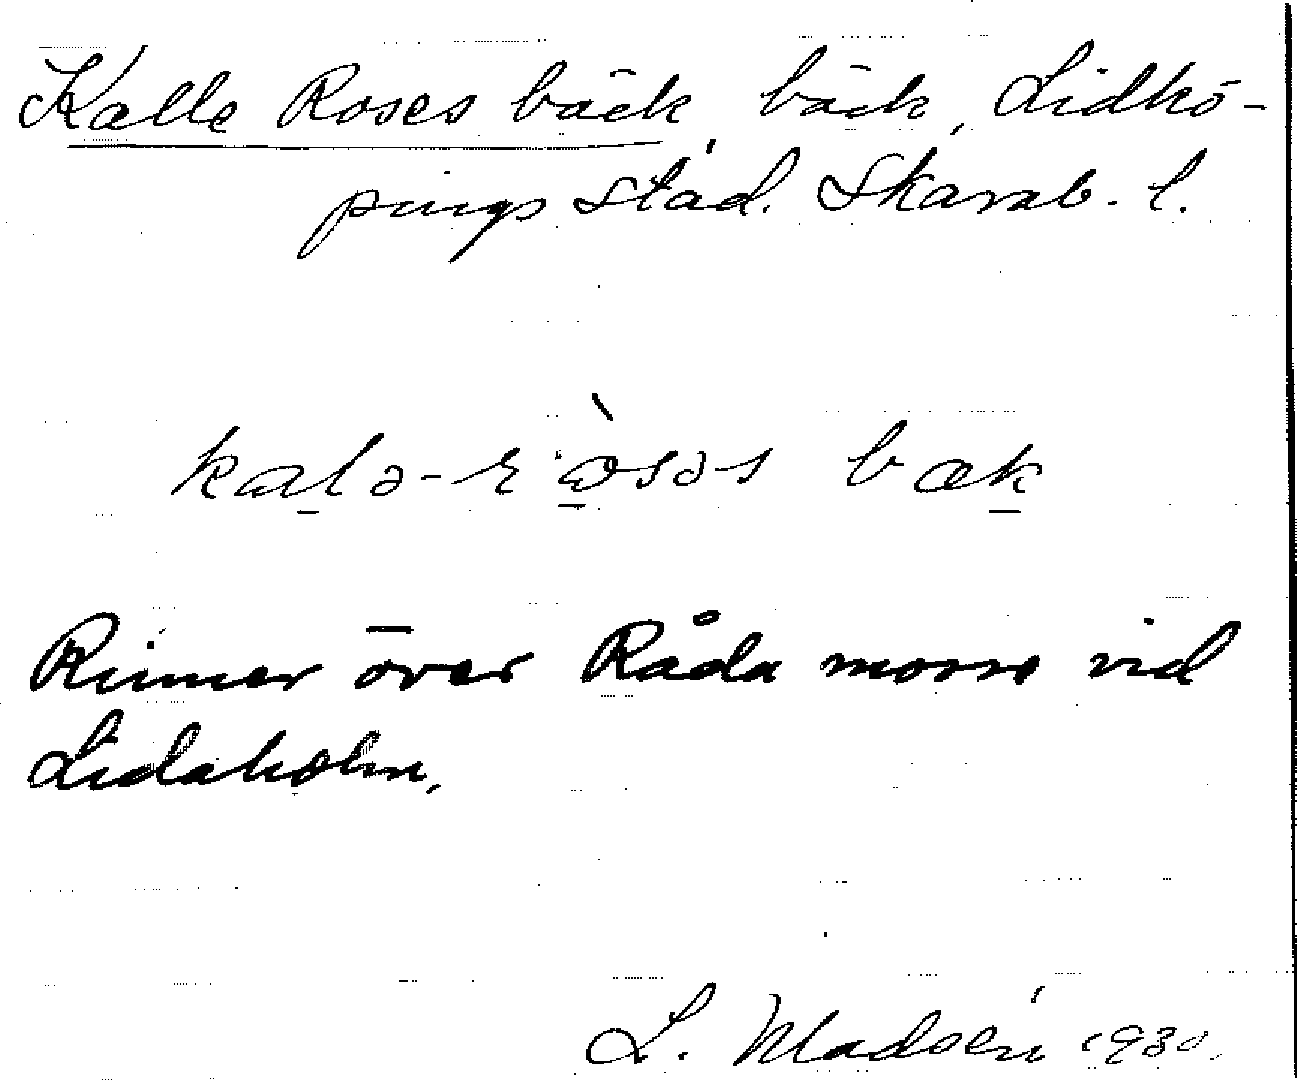 Kalle Roses bäck, bäck, Lidkö-
pings stad. Skarab. l.
kalə-r òsəs bæk
Rinner över Råda mosse vid
Lidaholm.
L. Madsén 1930.